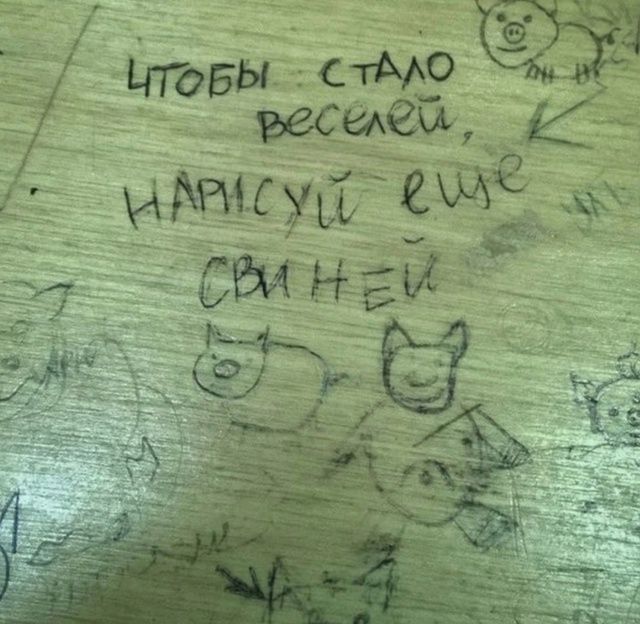 ЧТОБЫ СТАЛО
ВЕСЕЛЕЙ,
НАРИСУЙ ЕЩЕ
СВИНЕЙ